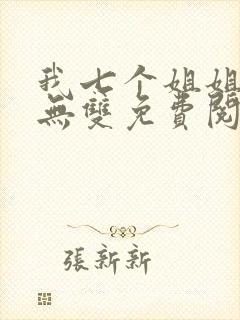 我七个姐姐
無雙免費閱
張新新